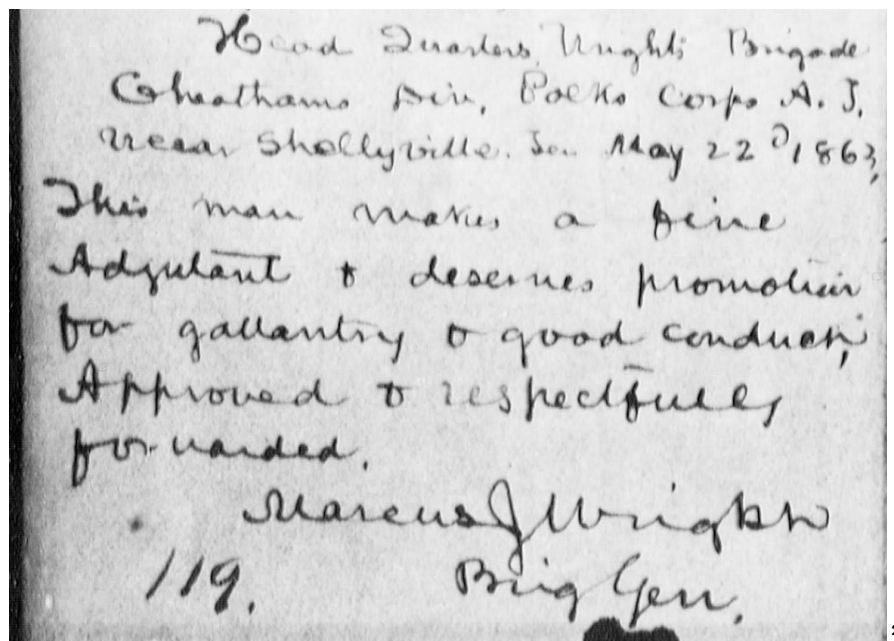 Head Quarters Wright's Brigade
Cheathams Div, Polks Corps A. T,
Near Shelbyville. Ten May 22d 1863,
This man makes a fine
Adjutant & deserves promotion
for gallantry & good conduct,
Approved & respectfully
forwarded.
Marcus J Wright
119. Brig Gen.